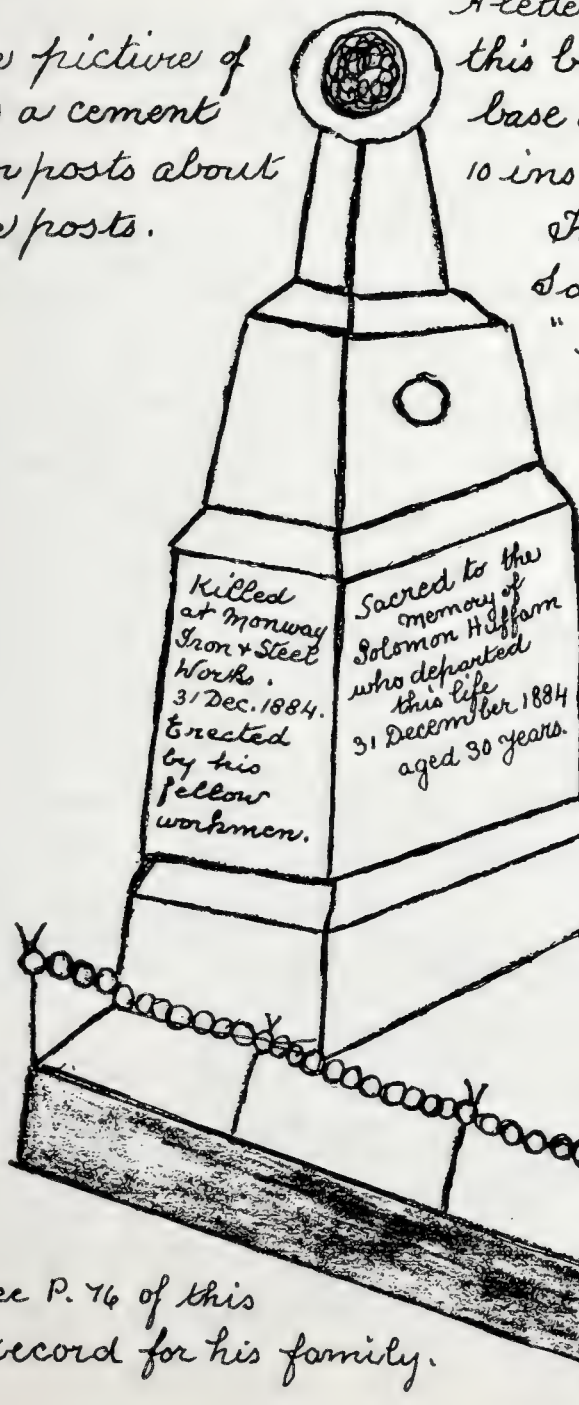 picture of
a cement
posts about
posts.
this
base
10 ins
Killed
at Monway
Iron & Steel
Works.
31 Dec. 1884.
Erected
by his
fellow
workmen.
Sacred to the
memory of
Solomon Huffam
who departed
this life
31 December 1884
aged 30 years.
P. 76 of this
record for his family.